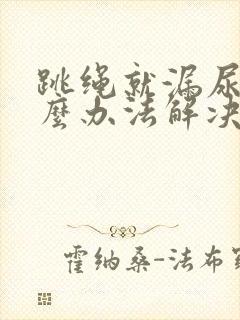 跳绳就漏尿
麼办法解决
霍纳桑-法布